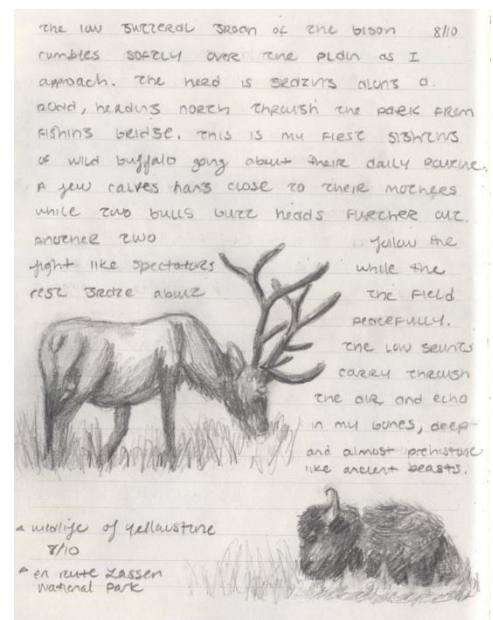 the low gutteral groan of the bison 8/10
rumbles softly over the plain as I
approach. The herd is grazing along a
road, heading north through the park from
fishing bridge. This is my first sighting
of wild buffalo going about their daily routine.
A few calves hang close to their mothers
while two bulls butt heads further out.
Another two follow the
fight like spectators while the
rest graze about the field
peacefully.
The low grunts
carry through
the air and echo
in my bones, deep
and almost prehistoric
like ancient beasts.
wildlife of yellowstone
8/10
en route Lassen
National Park